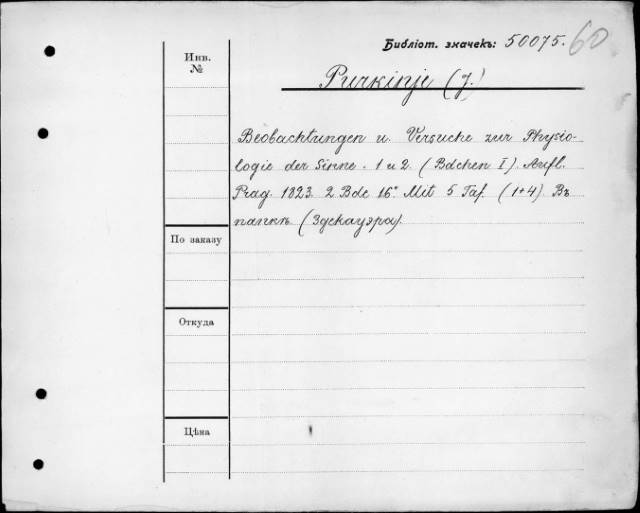 Библіот. значекъ: 50075. 60
Инв.
№
Purkinje (J.)
Beobachtungen u. Versuche zur Physio-
logie der Sinne. 1 u 2. (Bdchen I). Aufl.
Prag. 1823. 2 Bde 16° Mit 5 Taf. (1+4). Въ
папкѣ (Здекауэра).
По заказу
Откуда
Цѣна